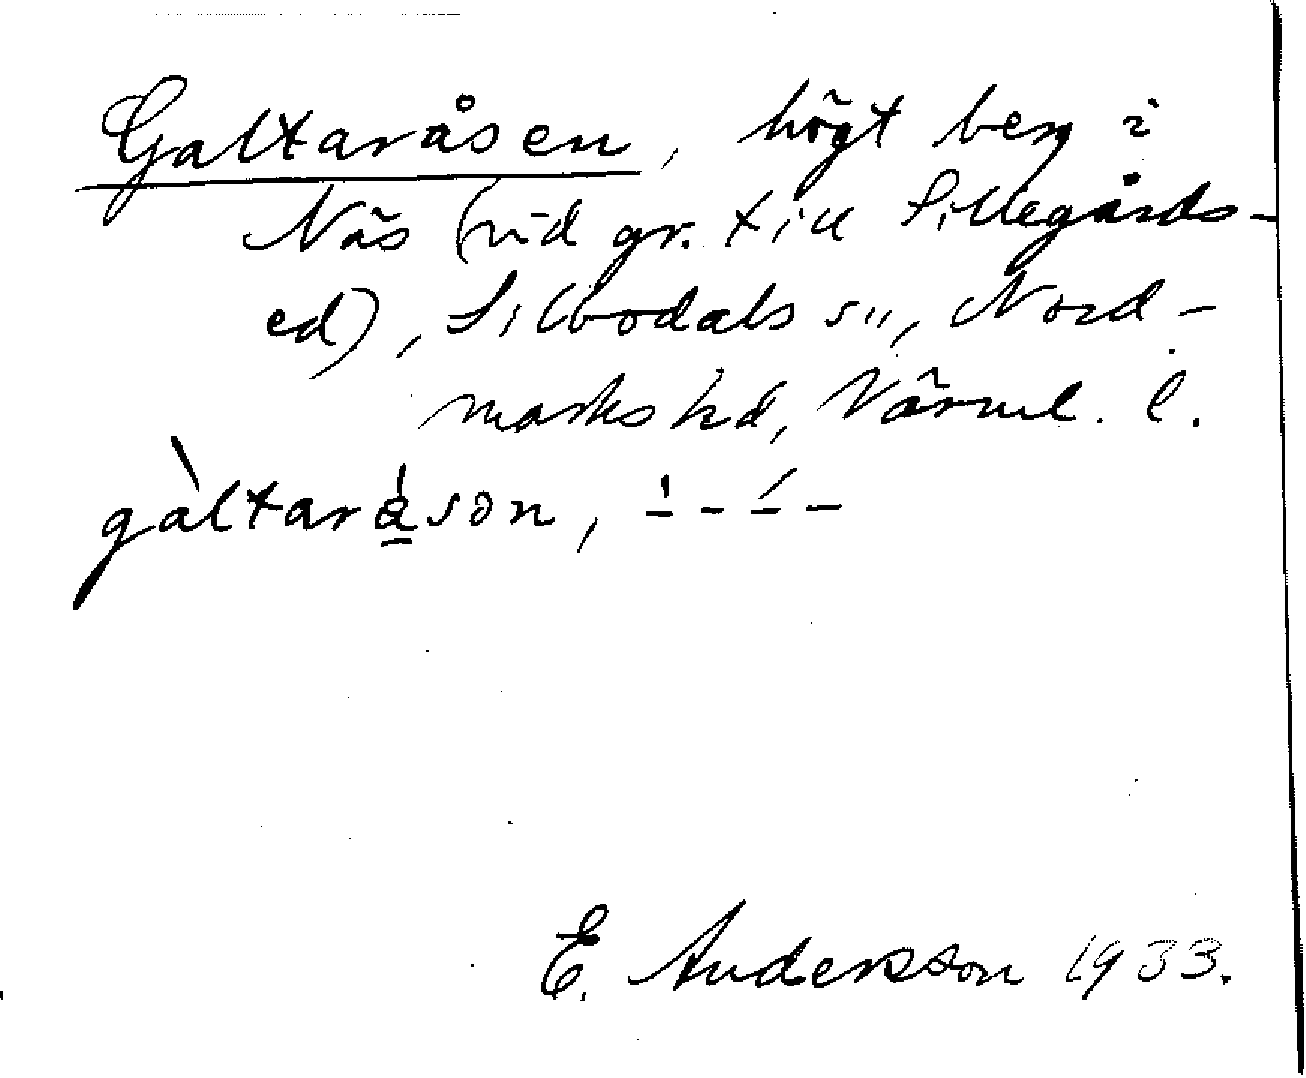 Galtaråsen, högt berg i
Näs (vid gr. till Sillegårds-
ed), Silbodals sn, Nord-
marks hd, Värml. l.
gàltaråsən, -́ - -́ -
E. Andersson 1933.